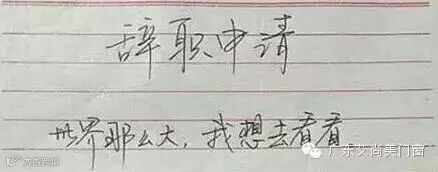 辞职申请
世界那么大，我想去看看
广东艾尚美门窗